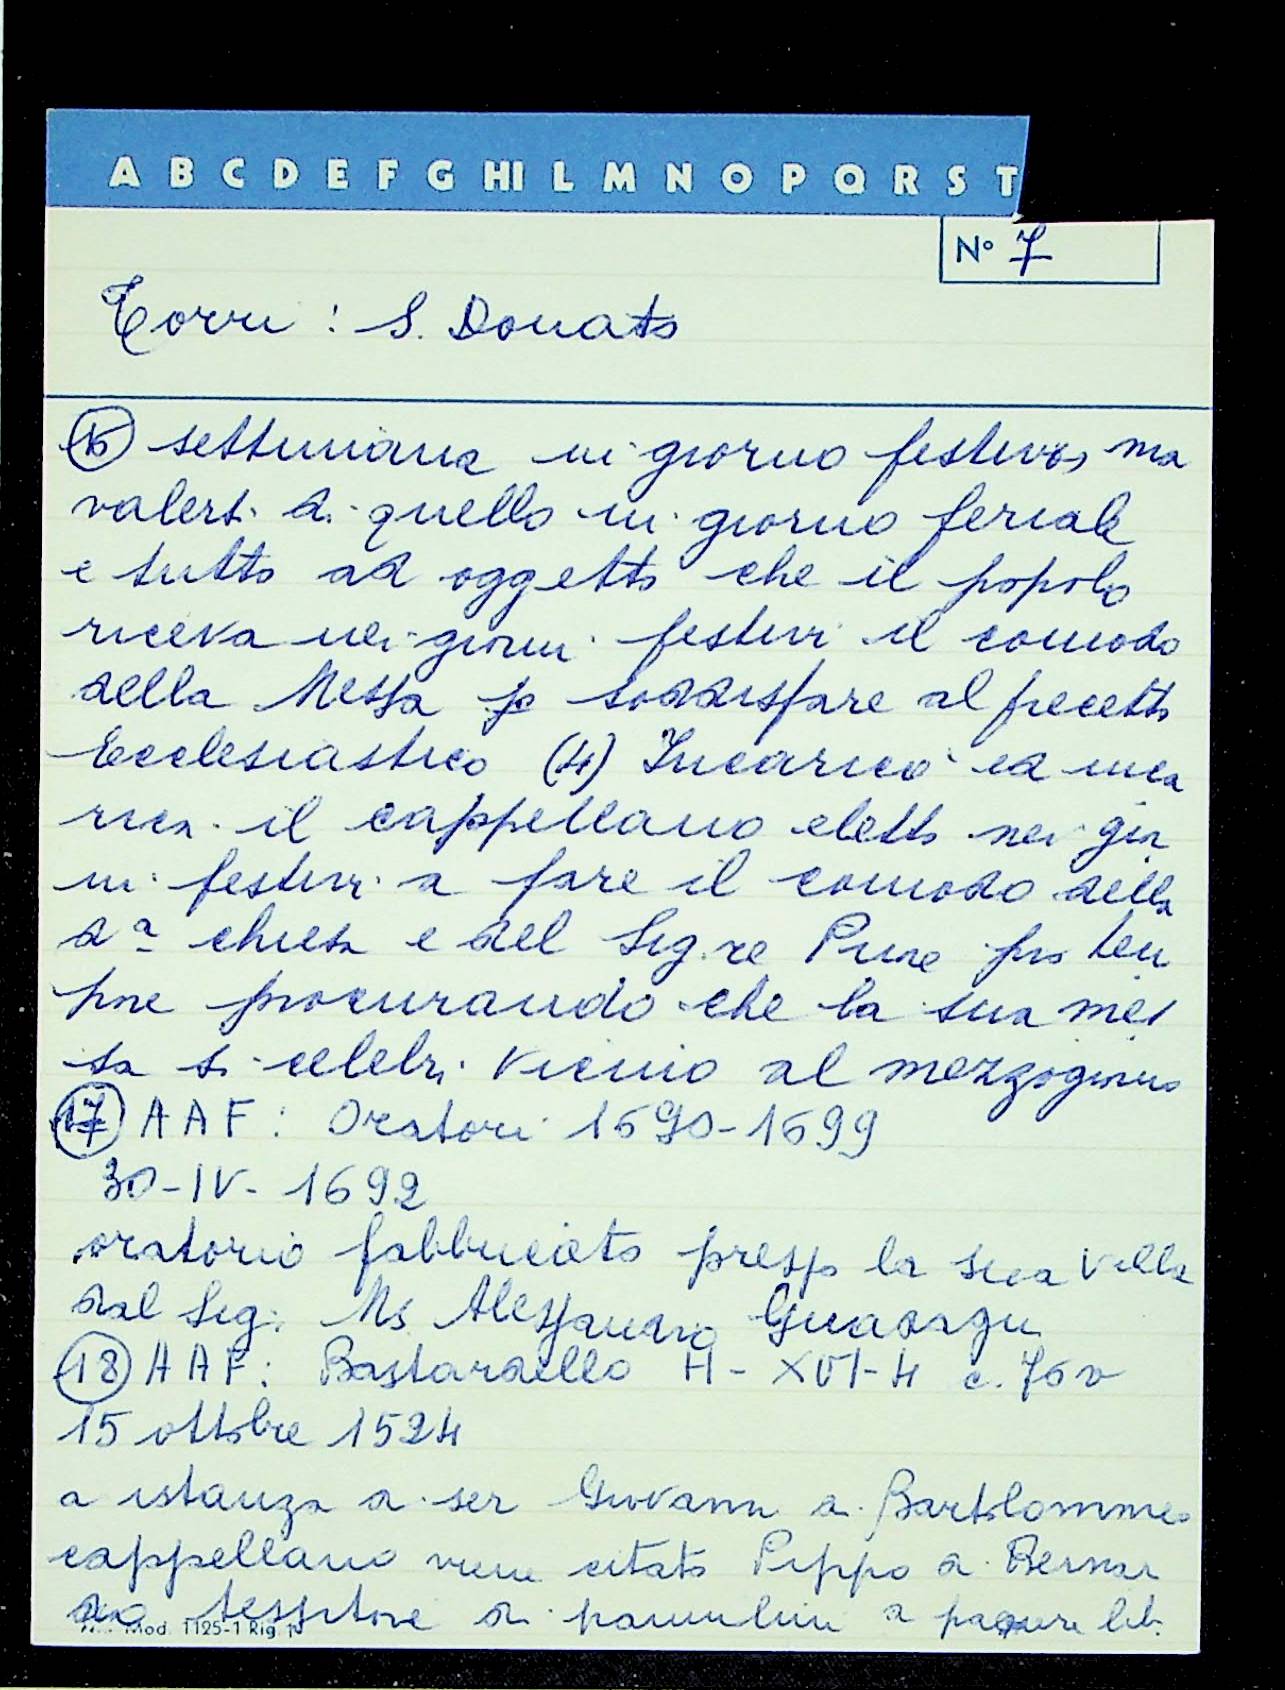 A B C D E F G HI L M N O P Q R S T
N° 7
Torri : S. Donato
16 settimana in giorno festivo, ma
valersi di quello in giorno feriale
e tutto ad oggetto che il popolo
riceva nei giorni festivi il comodo
della Messa p soddisfare al precetto
Ecclesiastico (4) Incaricò ed inca
rica il cappellano eletto nei gior
ni festivi a fare il comodo della
dª chiesa e del Sig.re Priore pro tem
pore procurando che la sua mes
sa si celebri vicino al mezzogiorno
17 A A F : Oratori 1690-1699
30-IV- 1692
oratorio fabbricato presso la sua villa
dal Sig. Ms Alessandro Guadagni
18 A A F : Bastardello H - XVI-4 c. 76v
15 ottobre 1524
a istanza di ser Giovanni di Bartolommeo
cappellano viene citato Pippo di Bernar
do tessitore di pannilini a pagare lib.
Mod. 1125-1 Rig.